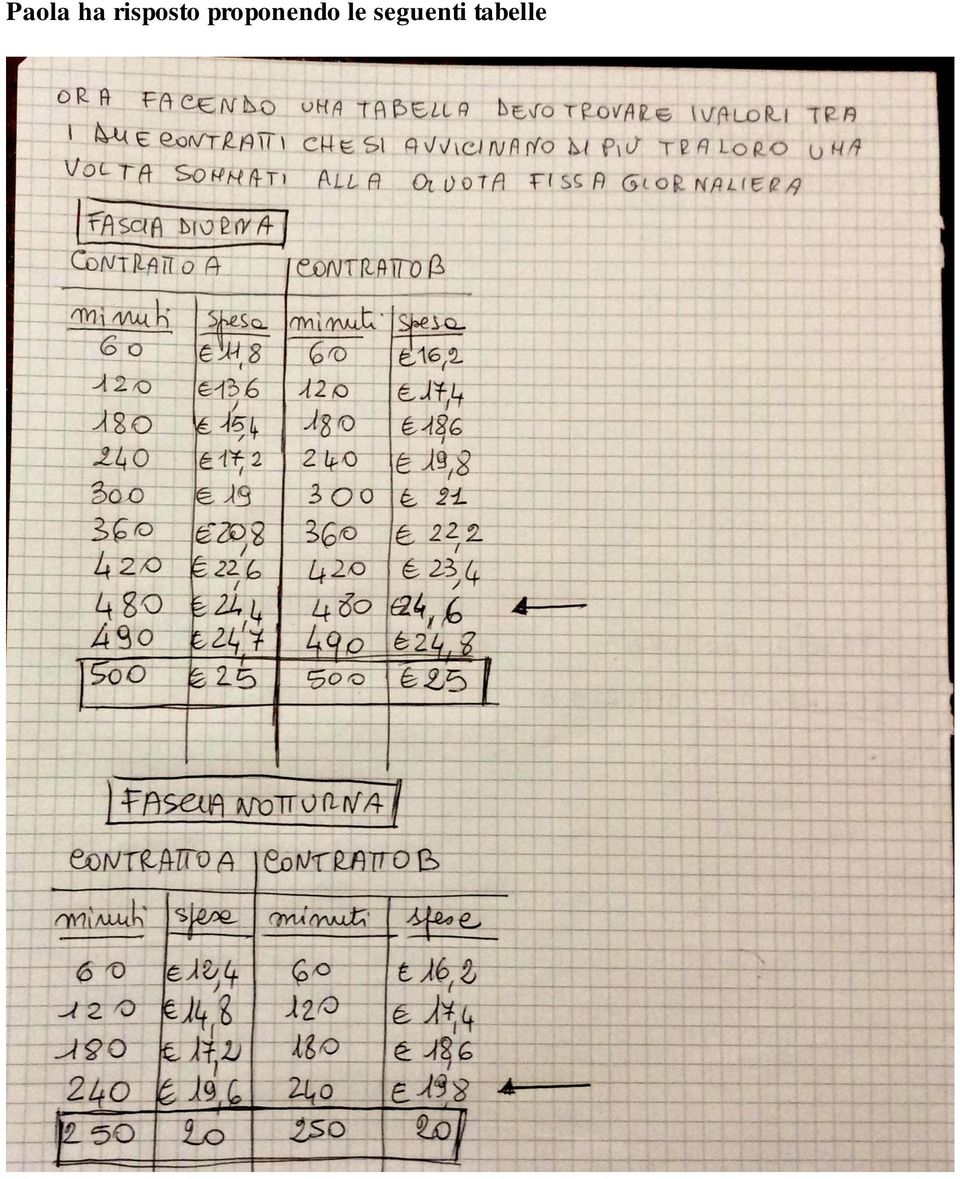 Paola ha risposto proponendo le seguenti tabelle
ORA FACENDO UNA TABELLA DEVO TROVARE I VALORI TRA
I DUE CONTRATTI CHE SI AVVICINANO DI PIÙ TRA LORO UNA
VOLTA SOMMATI ALLA QUOTA FISSA GIORNALIERA
FASCIA DIURNA
CONTRATTO A CONTRATTO B
minuti spesa minuti spesa
60 € 11,8 60 € 16,2
120 € 13,6 120 € 17,4
180 € 15,4 180 € 18,6
240 € 17,2 240 € 19,8
300 € 19 300 € 21
360 € 20,8 360 € 22,2
420 € 22,6 420 € 23,4
480 € 24,4 480 € 24,6
490 € 24,7 490 € 24,8
500 € 25 500 € 25
FASCIA NOTTURNA
CONTRATTO A CONTRATTO B
minuti spese minuti spese
60 € 12,4 60 € 16,2
120 € 14,8 120 € 17,4
180 € 17,2 180 € 18,6
240 € 19,6 240 € 19,8
250 20 250 20